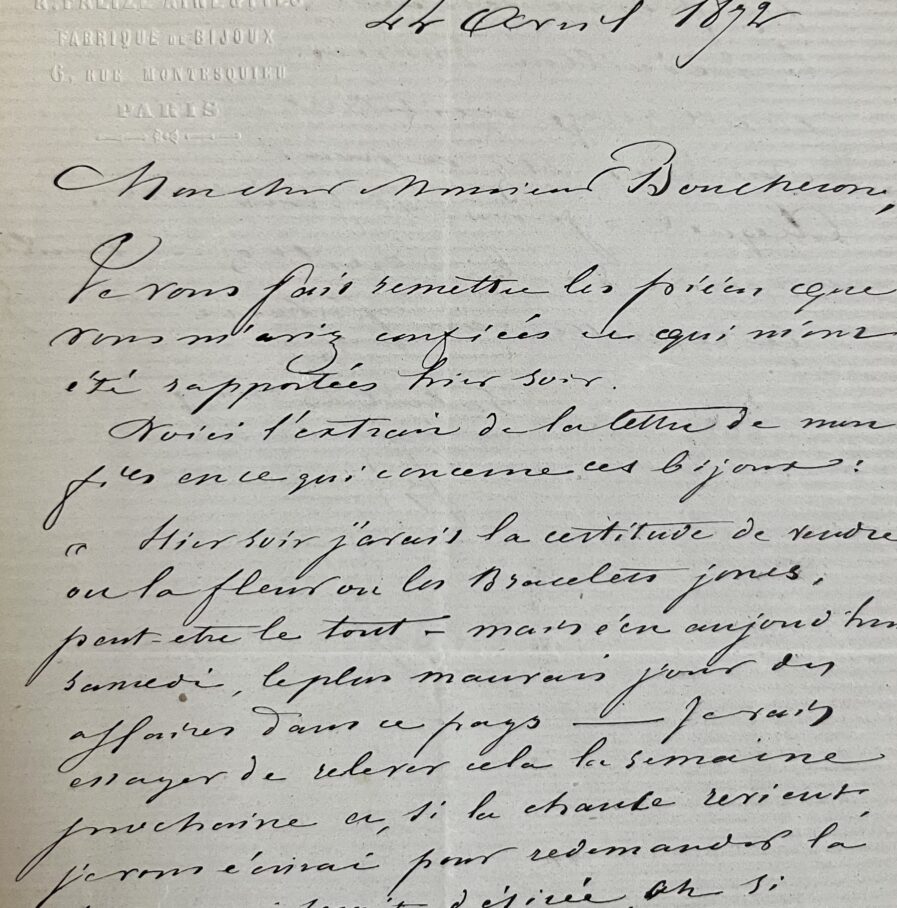 A. FALIZE AINÉ & FILS
FABRIQUE DE BIJOUX
6, RUE MONTESQUIEU
PARIS
Avril 1872
Mon cher Monsieur Boucheron,
Je vous fais remettre les pièces que
vous m'aviez confiées et qui m'ont
été rapportées hier soir.
Voici l'extrait de la lettre de mon
fils en ce qui concerne ces bijoux :
" Hier soir j'avais la certitude de vendre
ou la fleur ou les Bracelets joncs,
peut-être le tout – mais c'en aujourd'hui
samedi, le plus mauvais jour des
affaires dans ce pays — Je vais
essayer de relever cela la semaine
prochaine et, si la chance revient,
je vous écrirai pour redemander la
désirée, Ah si